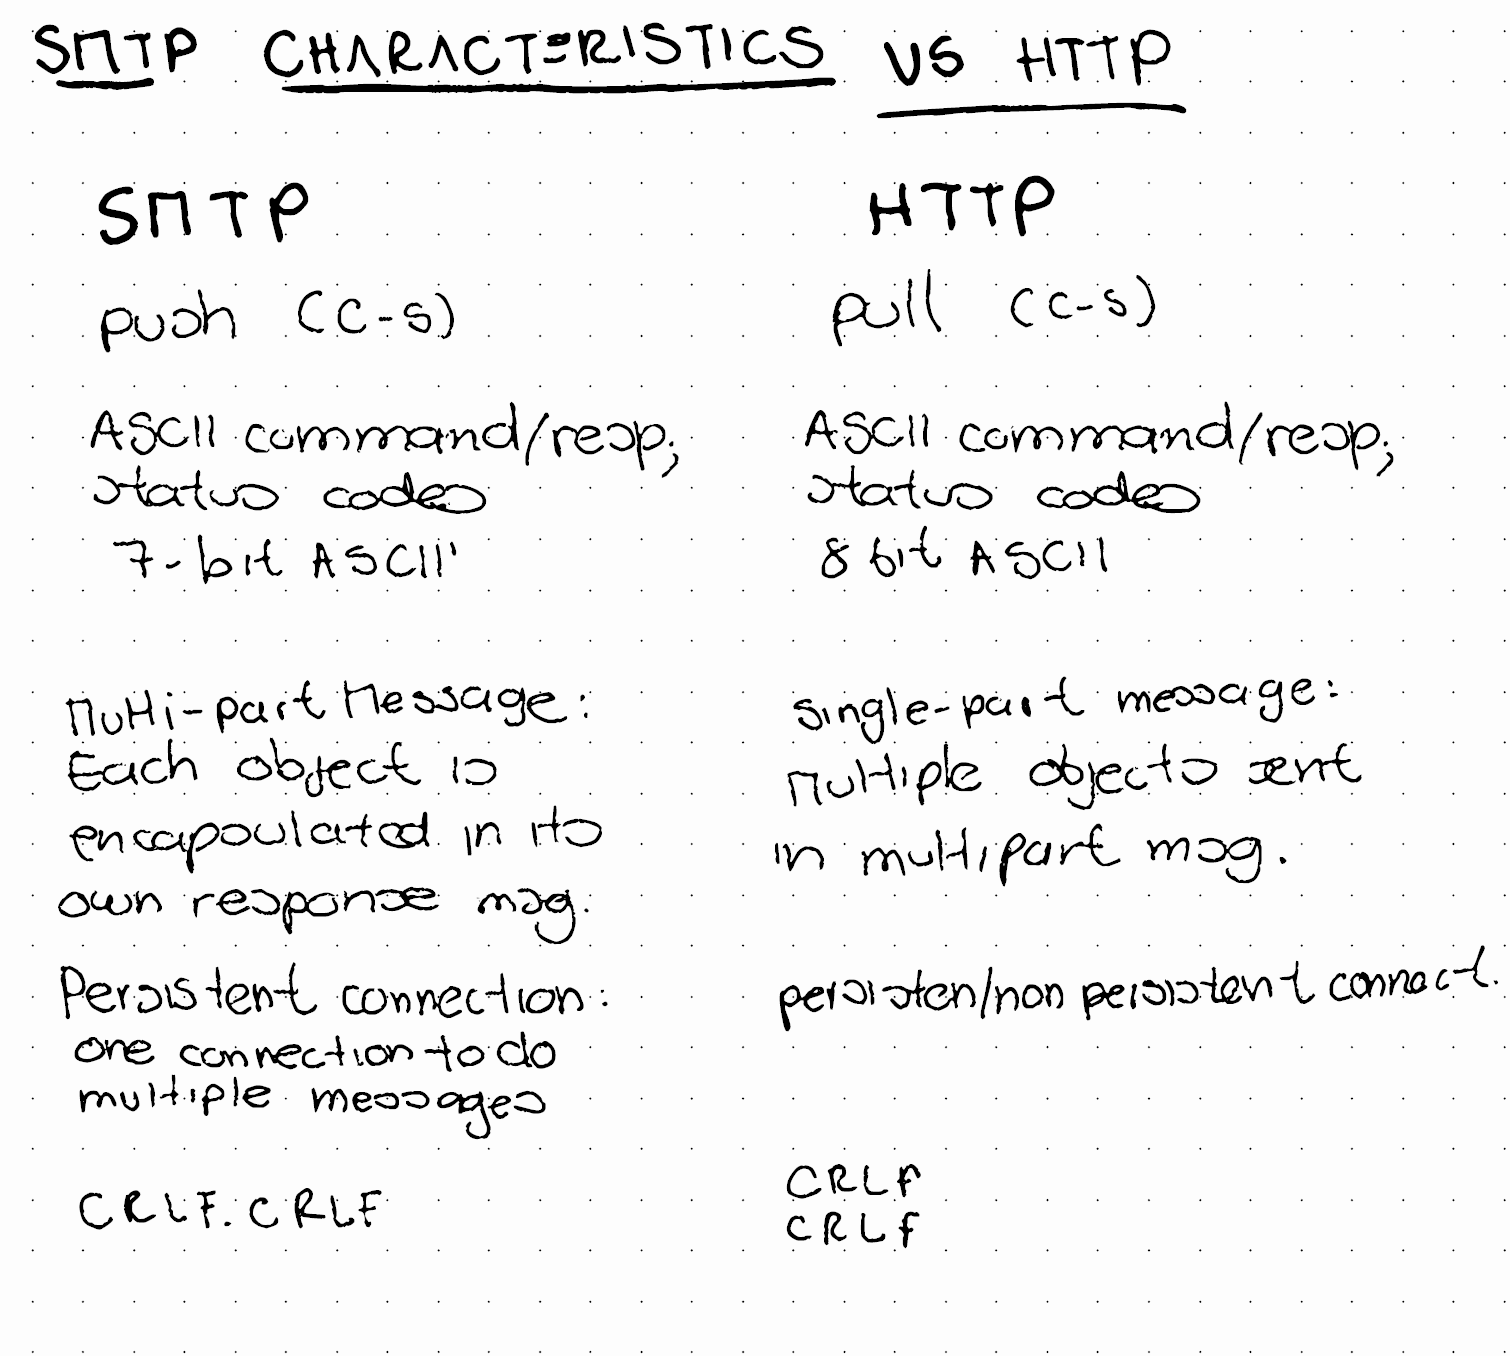 SMTP CHARACTERISTICS VS HTTP
SMTP
push (C-S)
ASCII command/resp;
status codes
7-bit ASCII'
Multi-part Message:
Each object is
encapsulated in its
own response msg.
Persistent connection:
one connection to do
multiple messages
CRLF.CRLF
HTTP
pull (C-S)
ASCII command/resp;
status codes
8 bit ASCII
single-part message:
Multiple objects sent
in multipart msg.
persisten/non persistent connect.
CRLF
CRLF